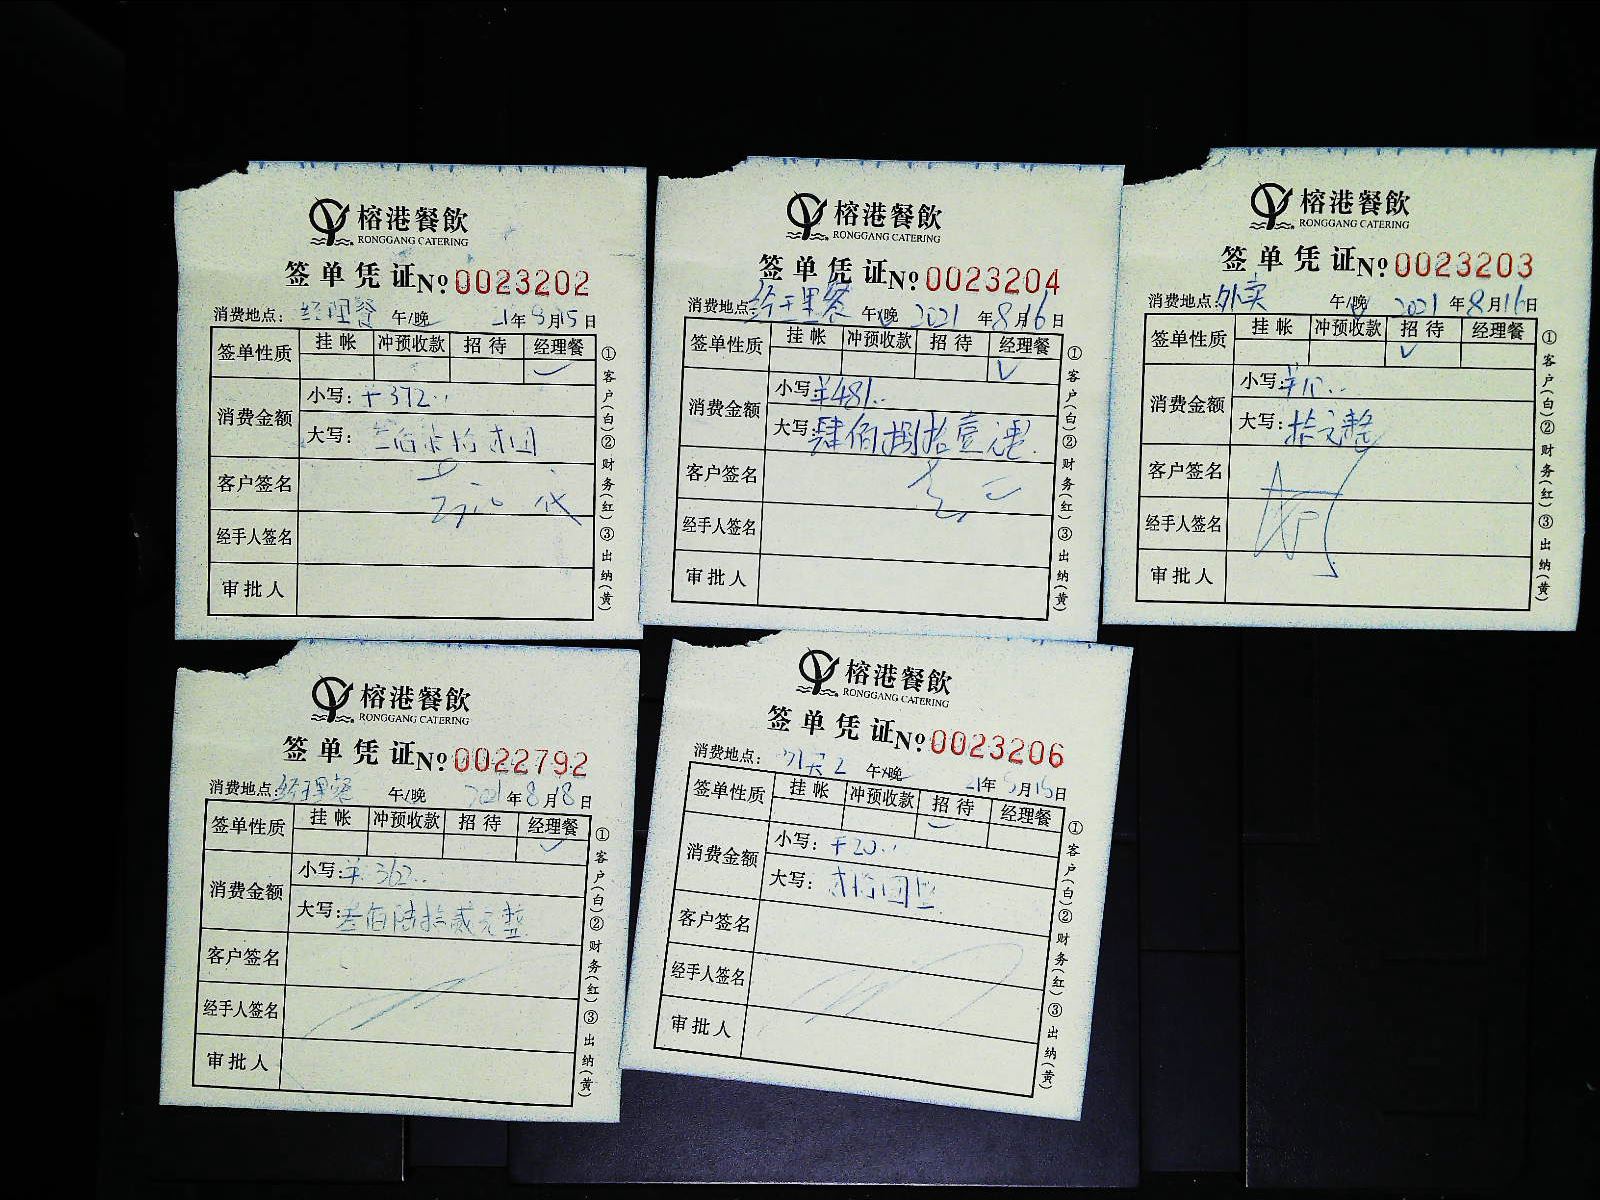 榕港餐飲
RONGGANG CATERING
签单凭证 No 0023202
消费地点: 经理餐 午/晚 21年8月15日
签单性质 挂帐 冲预收款 招待 经理餐
消费金额 小写: ¥372..
大写:
客户签名
经手人签名
审批人
①客户(白)②财务(红)③出纳(黄)
榕港餐飲
RONGGANG CATERING
签单凭证 No 0023204
消费地点: 经理餐 午/晚 2021年8月16日
签单性质 挂帐 冲预收款 招待 经理餐
消费金额 小写: ¥481..
大写: 肆佰捌拾壹元
客户签名
经手人签名
审批人
①客户(白)②财务(红)③出纳(黄)
榕港餐飲
RONGGANG CATERING
签单凭证 No 0023203
消费地点: 外卖 午/晚 2021年8月16日
签单性质 挂帐 冲预收款 招待 经理餐
消费金额 小写: ¥10..
大写: 拾元整
客户签名
经手人签名
审批人
①客户(白)②财务(红)③出纳(黄)
榕港餐飲
RONGGANG CATERING
签单凭证 No 0022792
消费地点: 经理餐 午/晚 2021年8月18日
签单性质 挂帐 冲预收款 招待 经理餐
消费金额 小写: ¥362..
大写: 叁佰陆拾贰元整
客户签名
经手人签名
审批人
①客户(白)②财务(红)③出纳(黄)
榕港餐飲
RONGGANG CATERING
签单凭证 No 0023206
消费地点: 午/晚 21年 月 日
签单性质 挂帐 冲预收款 招待 经理餐
消费金额 小写: ¥20..
大写:
客户签名
经手人签名
审批人
①客户(白)②财务(红)③出纳(黄)